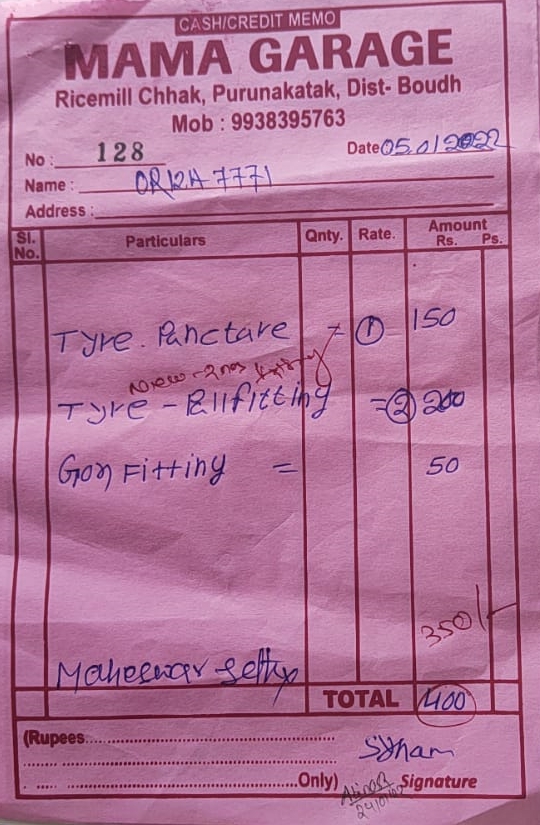 CASH/CREDIT MEMO
MAMA GARAGE
Ricemill Chhak, Purunakatak, Dist- Boudh
Mob : 9938395763
No : 128 Date 05.01.2022
Name : OR12A 7771
Address :
Sl. No. Particulars Qnty. Rate. Amount Rs. Ps.
Tyre. Panctare = ① 150
New - 2nos
Tyre - fitting = ② 200
Fitting = 50
350/-
Maheswar
TOTAL 400
(Rupees
Only) Signature